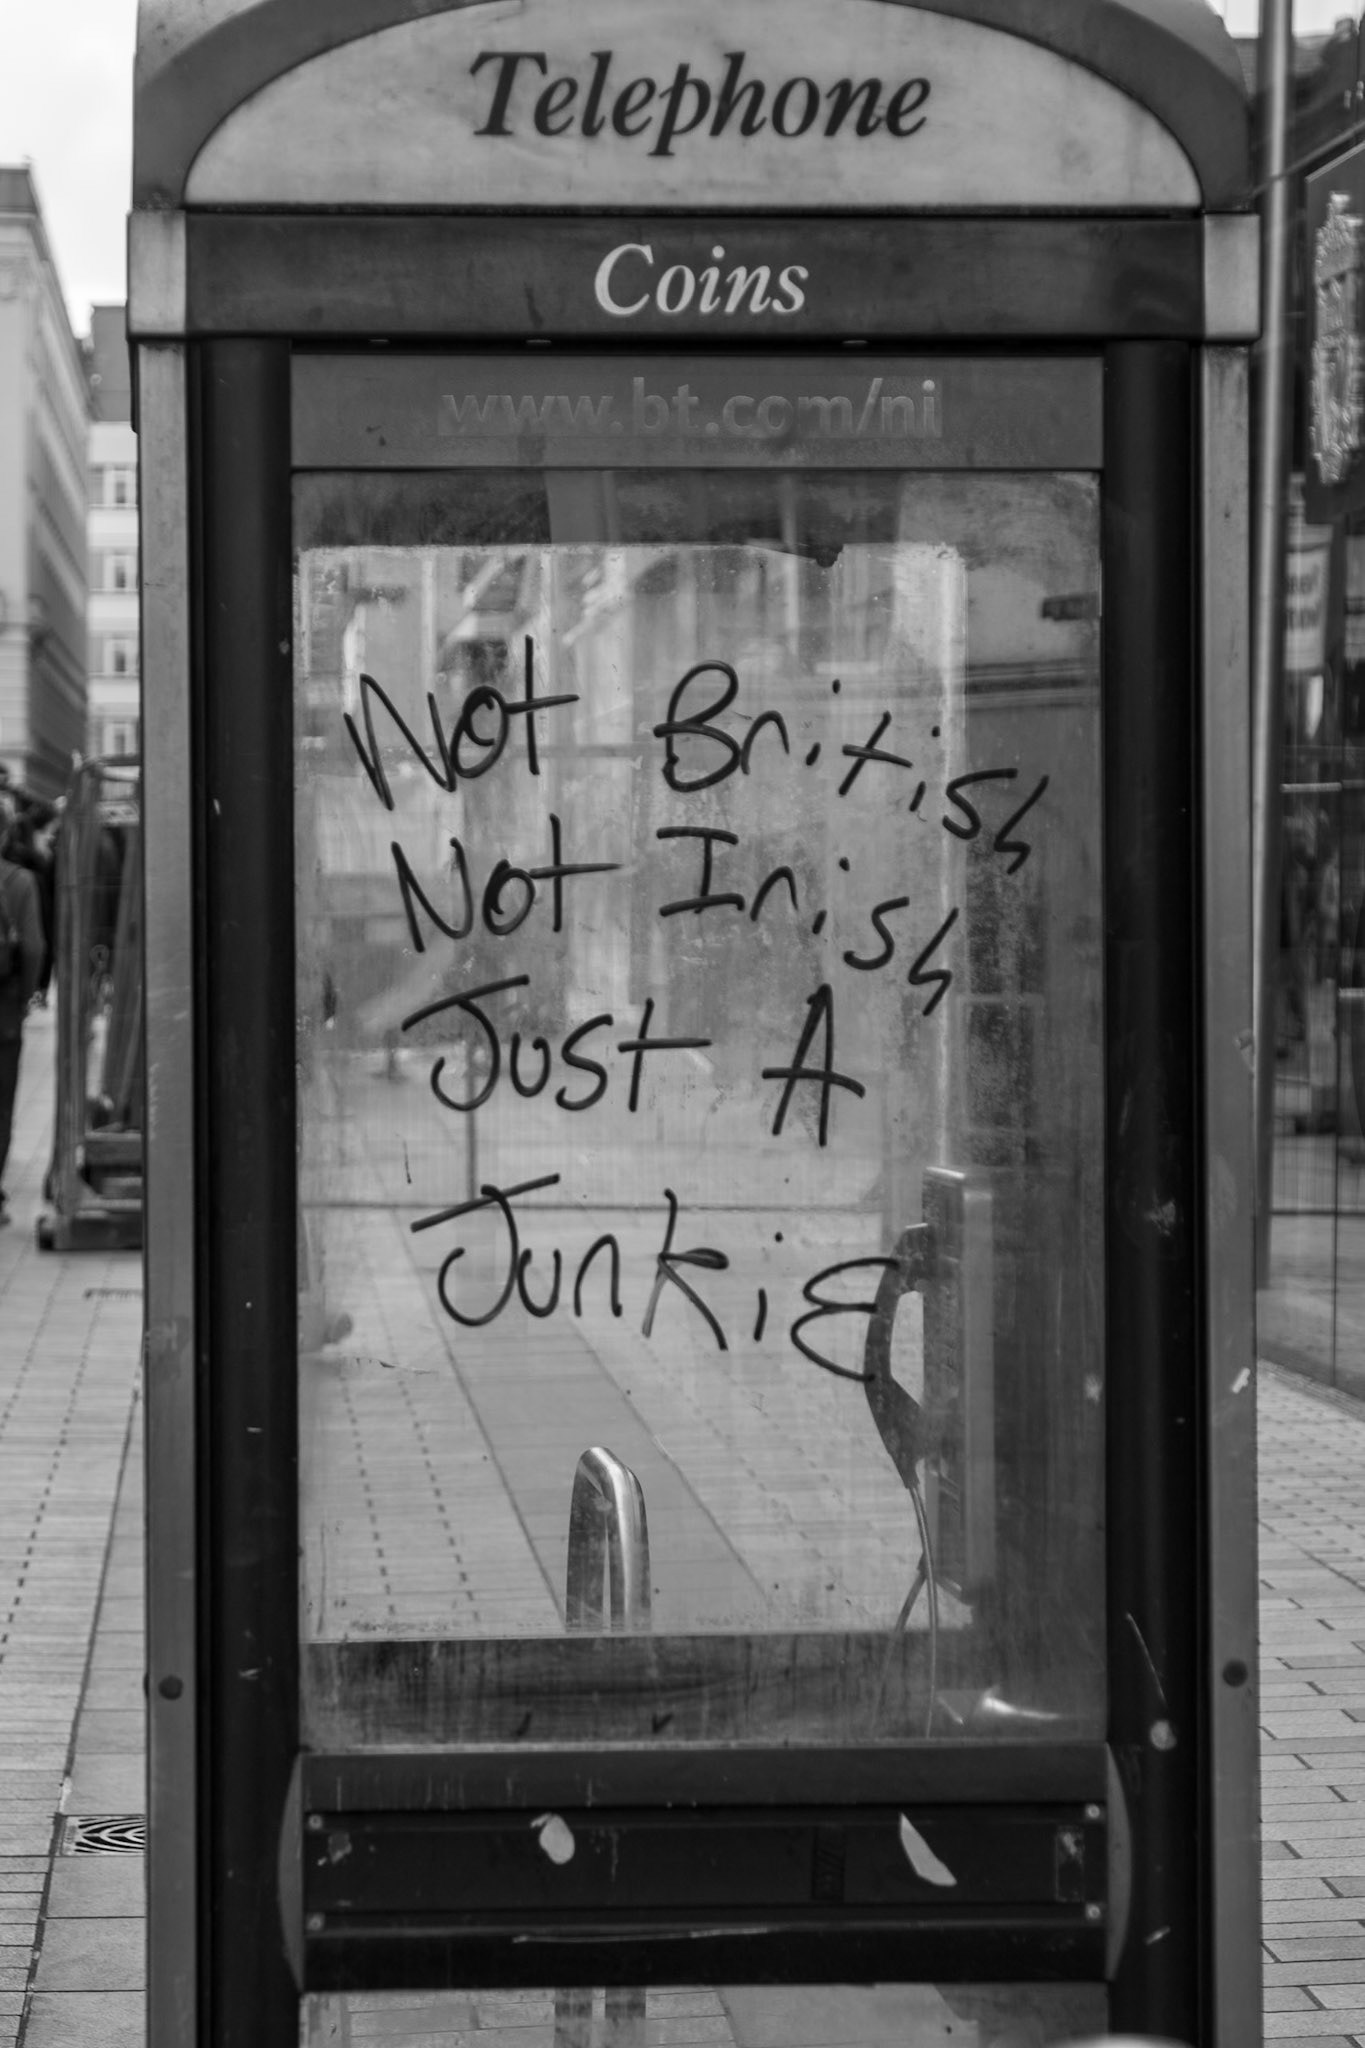 Telephone
Coins
www.bt.com/ni
Not British
Not Irish
Just A
JunkiE